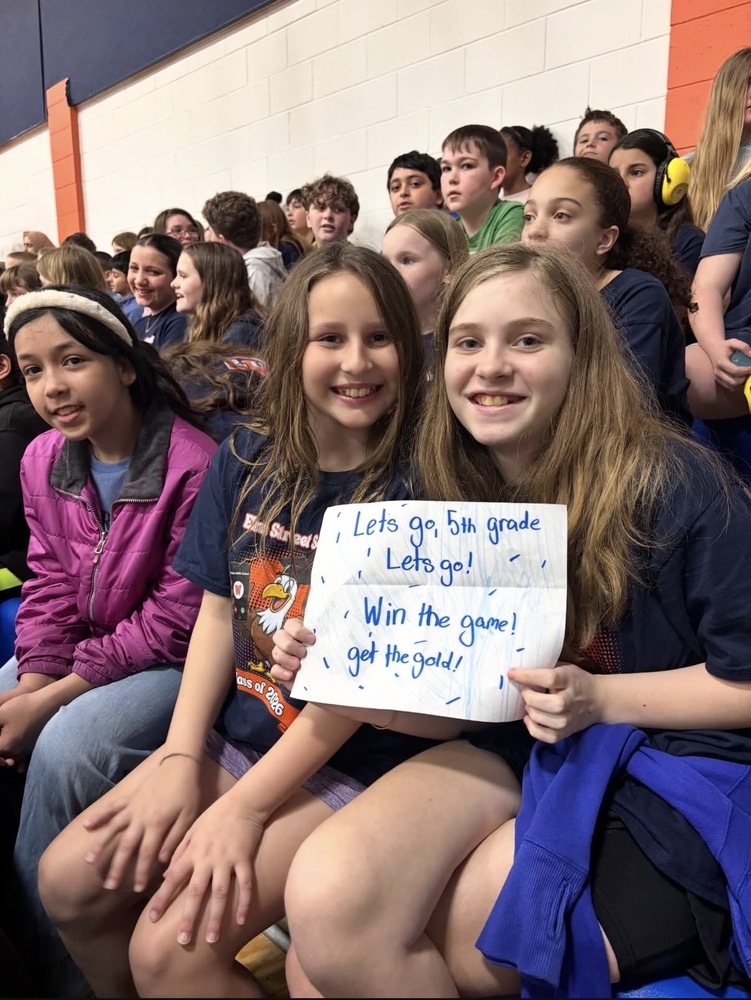 Lets go, 5th grade
Lets go!
Win the game!
get the gold!
Street
Class of 2026